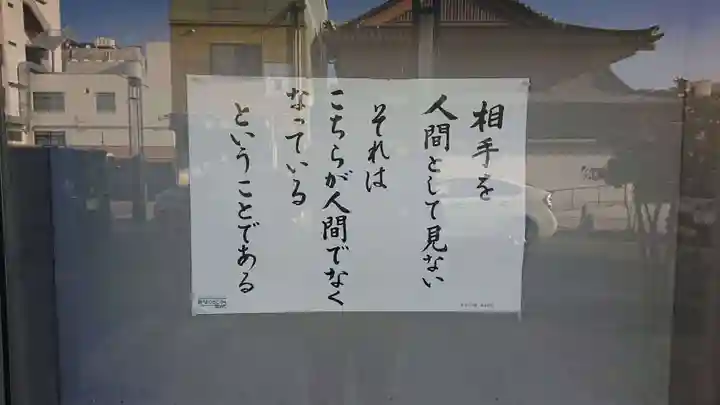 相手を
人間として見ない
それは
こちらが人間でなく
なっている
ということである